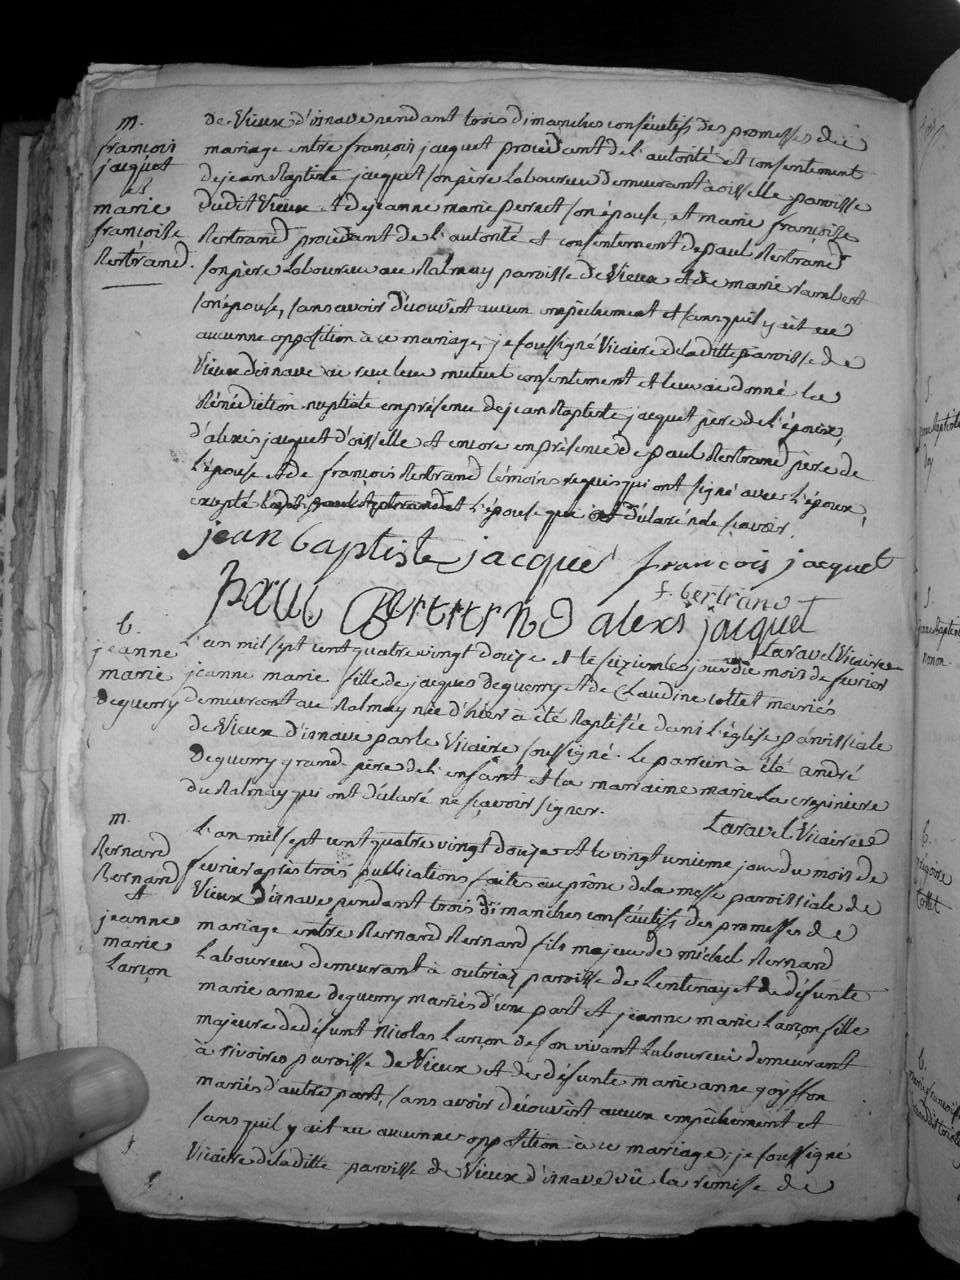 m.
françois
jacquet
et
marie
françoise
Bertrand.
de Vieux d'isnave pendant trois dimanches consécutifs des promesses de
mariage entre françois jacquet procédant de l'autorité et consentement
de jean Baptiste jacquet son père Laboureur demeurant à oisselle paroisse
dudit Vieux et de jeanne marie perret son épouse, et marie françoise
Bertrand procédant de l'autorité et consentement de paul Bertrand
son père Laboureur au Balmay paroisse de Vieux et de marie
son épouse, sans avoir découvert aucun empêchement et sans quil y ait eu
aucunne opposition à ce mariage, je soussigné Vicaire de la ditte paroisse de
Vieux d'isnave ai reçu leur mutuel consentement et leur ai donné la
Bénédiction nuptiale en présence de jean Baptiste jacquet père de l'époux,
d'alexis jacquet d'oisselle et encore en présence de paul Bertrand père de
l'épouse et de françois Bertrand témoins requis qui ont signé avec l'époux,
excepté l'épouse qui a déclaré ne sçavoir.
jean baptiste jacquet françois jacquet
f. bertrand
paul Bertrand alexis jacquet
Laravel Vicaire
b.
jeanne
marie
deguerry
L'an mil sept cent quatre vingt douze et le sixieme jour du mois de fevrier
jeanne marie fille de jacques deguerry et de Claudine Cottet mariés
demeurant au Balmay née d'hier à été Baptisée dans l'église paroissiale
de Vieux d'isnave par le Vicaire soussigné. Le parrein à été andré
deguerry grand-père de l'enfant et la marraine marie La crepiniere
du Balmay qui ont déclaré ne sçavoir signer.
Laravel Vicaire
m.
Bernard
Bernard
et
jeanne
marie
Larçon
L'an mil sept cent quatre vingt douze et le vingt unieme jour du mois de
fevrier après trois publications faites au prône de la messe paroissiale de
Vieux d'isnave pendant trois dimanches consécutifs des promesses de
mariage entre Bernard Bernard fils majeur de michel Bernard
Laboureur demeurant à outriaz paroisse de Lentenay et de défunte
marie anne deguerry mariés d'une part et jeanne marie Larçon fille
majeure de défunt Nicolas Larçon de son vivant Laboureur demeurant
à rivoires paroisse de Vieux et de défunte marie anne goyffon
mariés d'autre part, sans avoir découvert aucun empêchement et
sans quil y ait eu aucunne opposition à ce mariage, je soussigné
Vicaire de la ditte paroisse de Vieux d'isnave vû la remise de